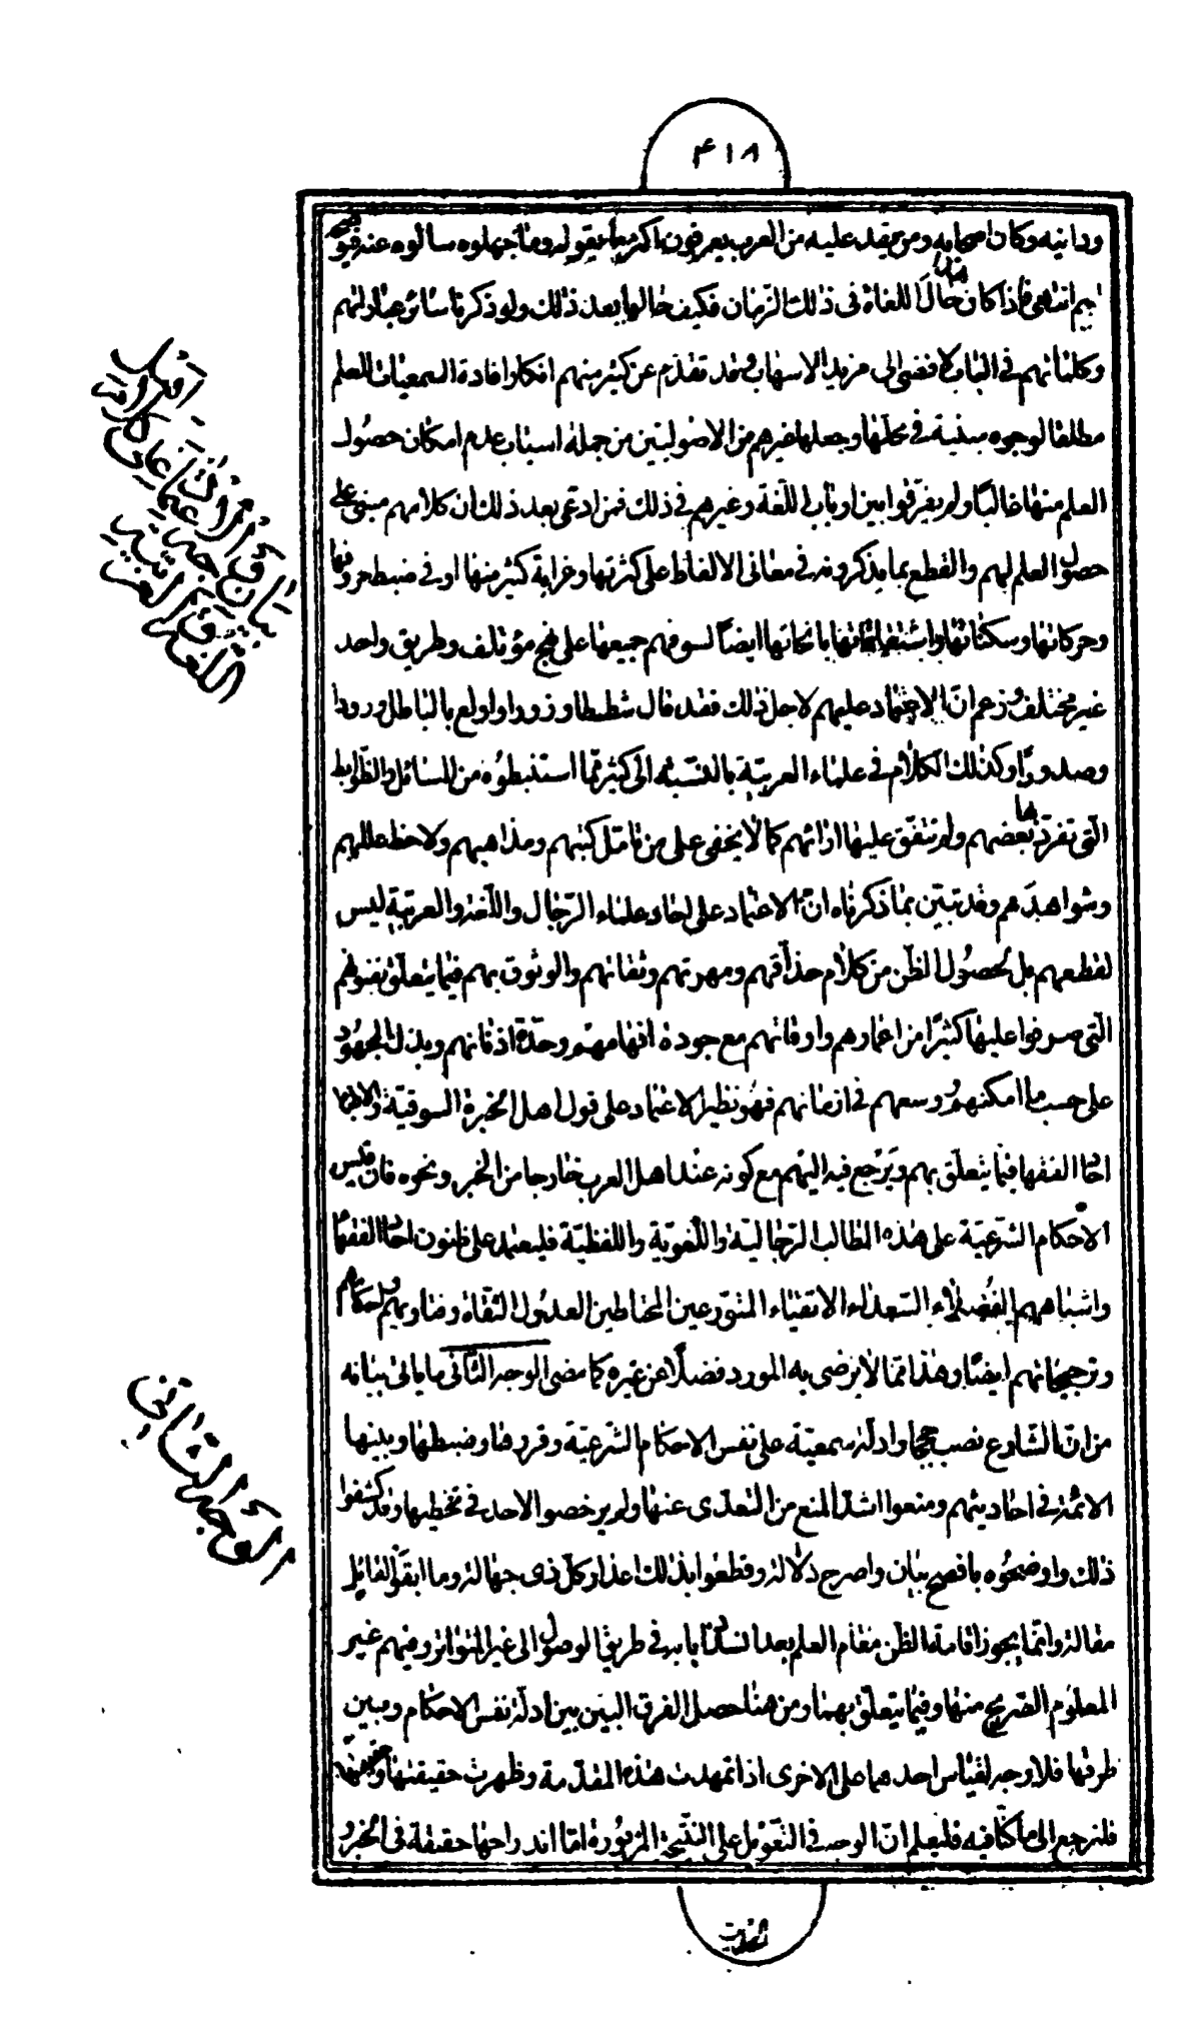 ۴۱۸
ودانيه وكان اصحابه ومن يفد عليه من العرب يعرفون اكثر ما يقوله وما جهلوه سالوه عنه فيوضحه
لهم انتهى فاذا كان هذا حال اللغة فى ذلك الزمان فكيف حالها بعد ذلك ولو ذكرنا سائر عباراتهم
وكلماتهم فى الباب لافضى الى مزيد الاسهاب وقد تقدم عن كثير منهم انكار افادة السمعيات للعلم
مطلقا لوجوه مبنية فى محلها وجعلها غيرهم من الاصوليين من جملة اسباب عدم امكان حصول
العلم منها غالبا ولم يفرقوا بين ارباب اللغة وغيرهم فى ذلك فمن ادعى بعد ذلك ان كلامهم مبنى على
حصول العلم لهم والقطع بما يذكرونه فى معانى الالفاظ على كثرتها وغرابة كثير منها او فى ضبط حروفها
وحركاتها وسكناتها واشتقاقاتها بانحائها ايضا لسوقهم جميعها على نهج مؤتلف وطريق واحد
غير مختلف وزعم ان الاعتماد عليهم لاجل ذلك فقد قال شططا وزورا واولع بالباطل ورودا
وصدورا وكذلك الكلام فى علماء العربية بالنسبة الى كثير مما استنبطوه من المسائل والضوابط
التى تفرد بها بعضهم ولم تتفق عليها اراؤهم كما لا يخفى على من تامل كتبهم ومذاهبهم ولاحظ عللهم
وشواهدهم وقد تبين بما ذكرناه ان الاعتماد على احاد علماء الرجال واللغة والعربية ليس
لقطعهم بل لحصول الظن من كلام حذاقهم ومهرتهم وثقاتهم والوثوق بهم فيما يتعلق بفنونهم
التى صرفوا عليها كثيرا من اعمارهم واوقاتهم مع جودة افهامهم وحدة اذهانهم وبذل المجهود
على حسب ما امكنهم ووسعهم فى ازمانهم فهو نظير الاعتماد على قول اهل الخبرة السوقية والاطباء
احاد الفقها فيما يتعلق بهم ويرجع فيه اليهم مع كونه عند اهل العرب خارجا من الخبر ونحوه فان قيس
الاحكام الشرعية على هذه المطالب الرجالية واللغوية واللفظية فليعتمد على ظنون احاد الفقهاء
واشباههم الفضلاء السعداء الاتقياء المتورعين المحتاطين العدول الثقاة وفتاويهم واحكامهم
وترجيحاتهم ايضا وهذا مما لا يرضى به المورد فضلا عن غيره كما مضى الوجه الثانى ما ياتى بيانه
من ان الشارع نصب حججا وادلة سمعية على نفس الاحكام الشرعية وقررها وضبطها وبينها
الائمة فى احاديثهم ومنعوا اشد المنع من التعدى عنها ولم يرخصوا لاحد فى تخطيها وقد كشفوا
ذلك واوضحوه بافصح بيان واصرح دلالة وقطعوا بذلك اعذار كل ذى جهالة وما ابقوا لقائل
مقالة وانما يجوز اقامة الظن مقام العلم بعد انسداد بابه فى طريق الوصول الى غير المتواتر وفهم غير
المعلوم الصريح منها وفيما يتعلق بهما ومن هنا حصل الفرق البين بين ادلة نفس الاحكام وبين
طرقها فلا وجه لقياس احدهما على الاخرى اذا تمهدت هذه المقدمة وظهرت حقيقتها
فلنرجع الى ما كنا فيه فليعلم ان الوجه فى التعويل على النتيجة المزبورة اما اندراجها حقيقة فى الخبر و
الوجه الثانى